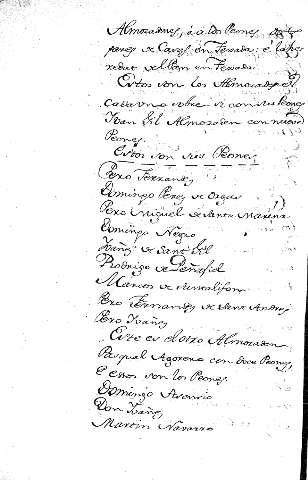 Almocadenes, é á los Peones
pares de Casas en Texada: é la he
redat de el Pan en Texada.
Estos son los Almocadenes
cada uno sobre si con sus Peones
Ivan Gil Almocaden con nueve
Peones.
Estos son sus Peones
Pero Ferrandes
Domingo Perez de Orgas
Pero Miguel de Santa Marina
Domingo Negro
Ivañes de Sant Gil
Rodrigo de Peñafiel
Marcos de
Pero Fernandes de Sant Andres
Pero Ivañes
Este es el otro Almocaden
Pasqual Agoreno con doce Peones,
E estos son los Peones
Domingo Asensio
Don Ivañes
Martin Navarro